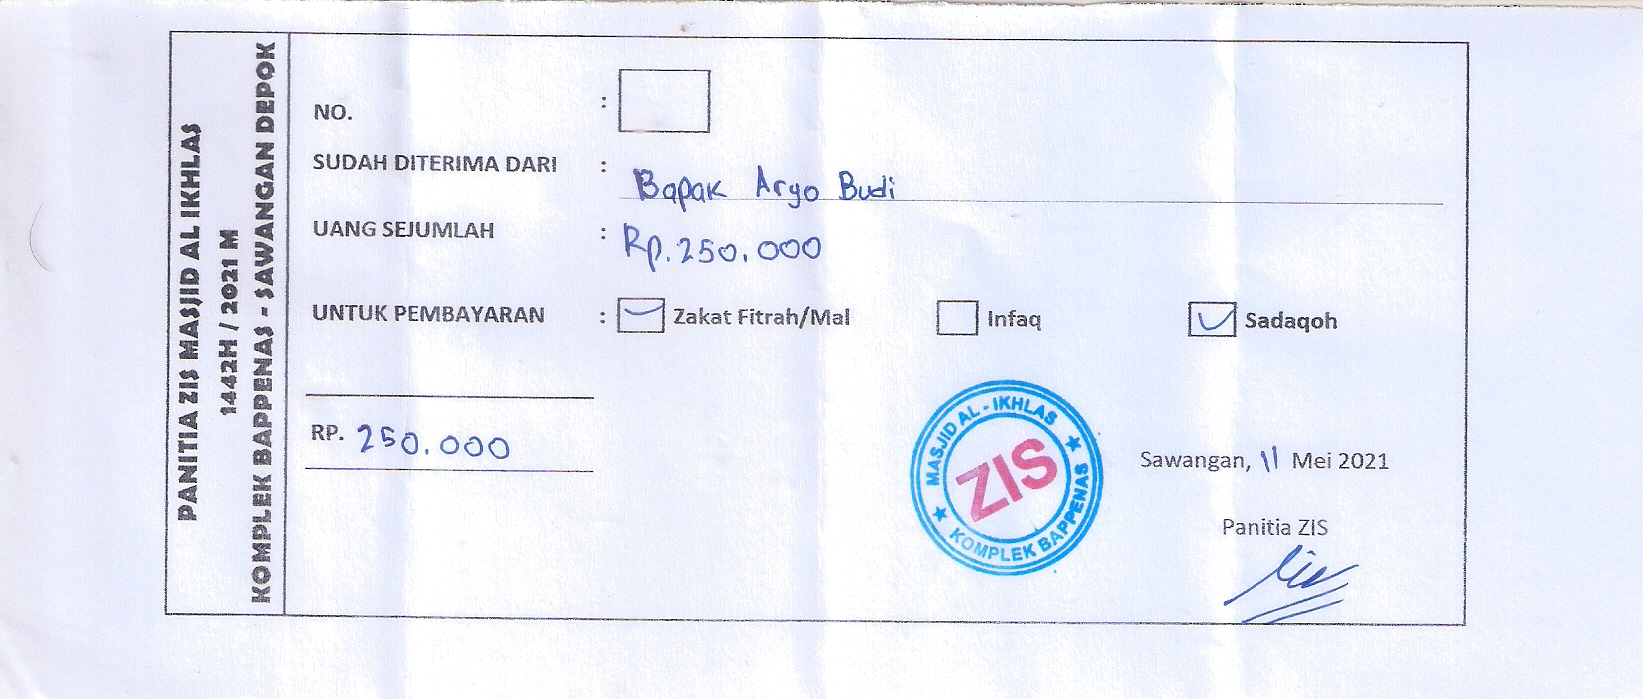 PANITIA ZIS MASJID AL IKHLAS
1442H / 2021 M
KOMPLEK BAPPENAS - SAWANGAN DEPOK
NO. :
SUDAH DITERIMA DARI : Bapak Aryo Budi
UANG SEJUMLAH : Rp. 250.000
UNTUK PEMBAYARAN : Zakat Fitrah/Mal Infaq Sadaqoh
RP. 250.000
MASJID AL - IKHLAS
ZIS
KOMPLEK BAPPENAS
Sawangan, 11 Mei 2021
Panitia ZIS